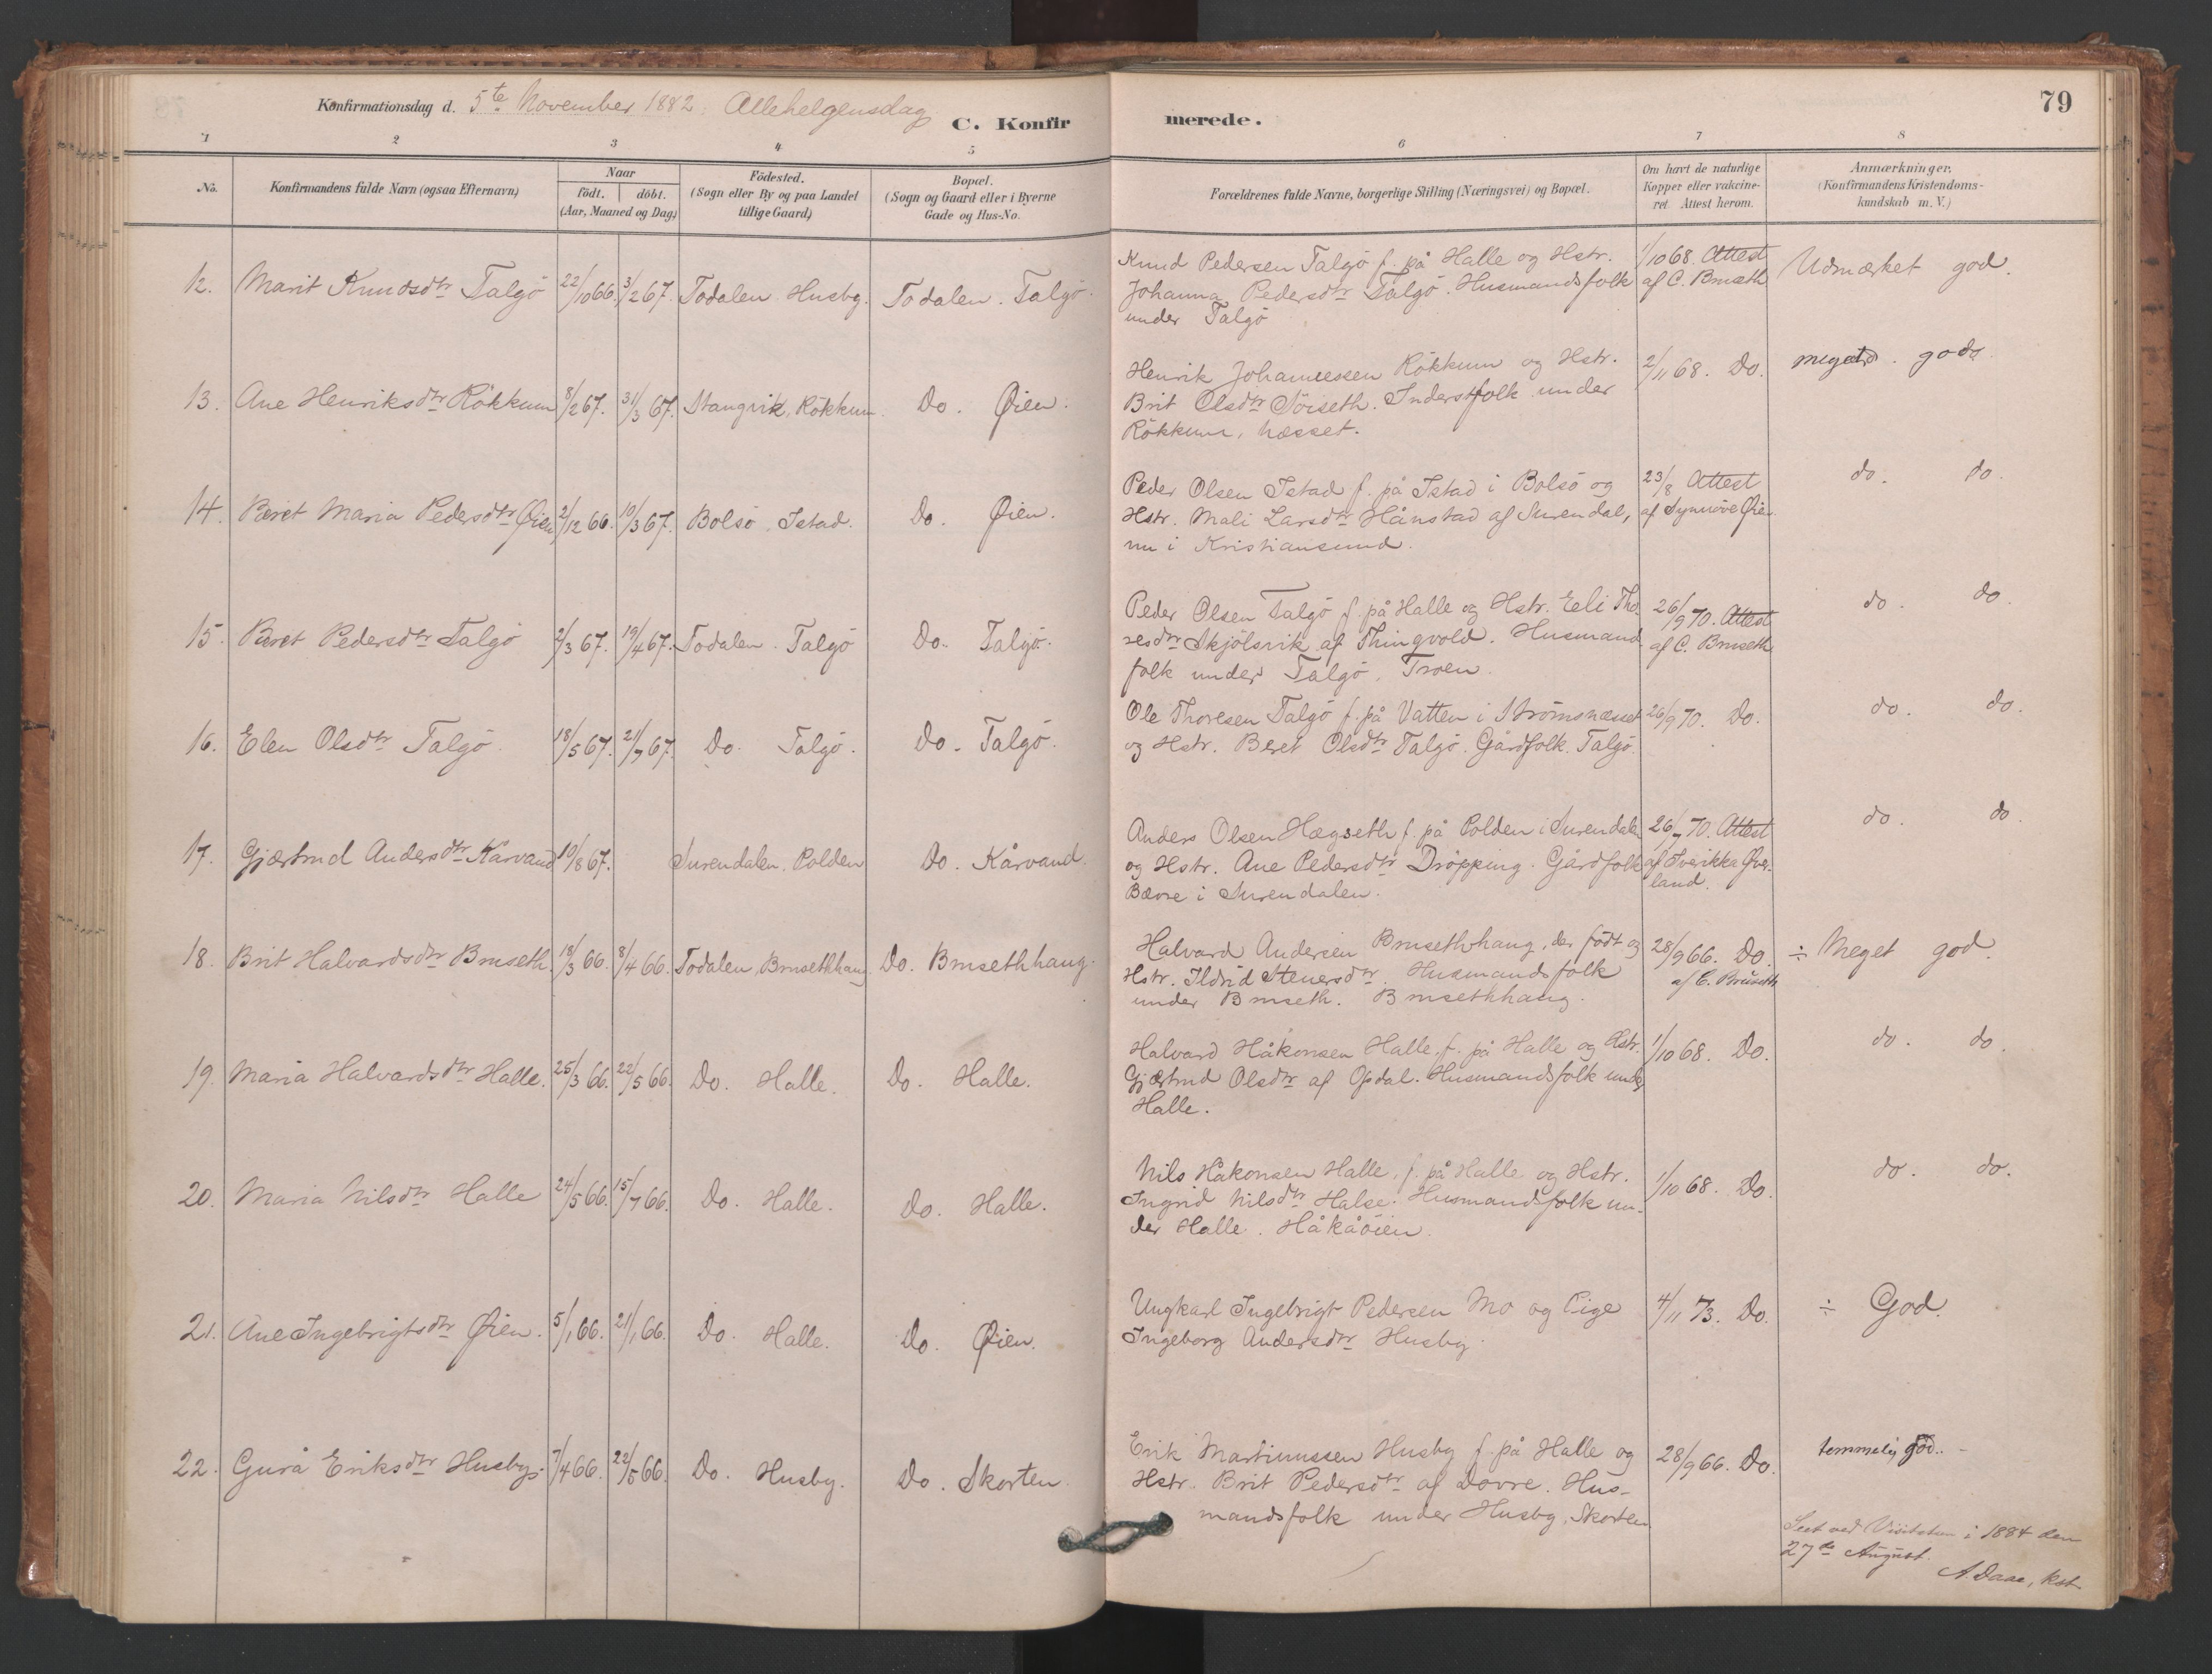 79
Konfirmationsdag d. 5te November 1882. Allehelgensdag
C. Konfirmerede.
1 2 3 4 5 6 7 8
No. Konfirmandens fulde Navn (ogsaa Efternavn) Naar födt. döbt. (Aar, Maaned og Dag) Födested. (Sogn eller By og paa Landet tillige Gaard) Bopæl. (Sogn og Gaard eller i Byerne Gade og Hus-No. Forældrenes fulde Navne, borgerlige Stilling (Næringsvei) og Bopæl. Om havt de naturlige Kopper eller vakcineret Attest herom. Anmærkninger. (Konfirmandens Kristendomskundskab m. V.)
12. Marit Knudsdtr Talgö 22/10 66. 3/2 67. Todalen Husby. Todalen. Talgö.
Knud Pedersen Talgö f. på Halle og Hstr.
Johanna Pedersdtr Talgö. Husmandsfolk
under Talgö
1/10 68. Attest
af C. Bruseth
Udmærket god.
13. Ane Henriksdtr Rökkum 8/2 67. 31/3 67. Stangvik, Rökkum. Do. Øien.
Henrik Johannessen Rökkum og Hstr.
Brit Olsdtr Sörseth. Inderstfolk under
Rökkum, Næsset.
2/11 68. Do.
meget god
14. Beret Maria Pedersdtr Øien 2/12 66. 10/3 67. Bolsö Istad. Do. Øien.
Peder Olsen Istad f. på Istad i Bolsö og
Hstr. Mali Larsdtr Hånstad af Surendal,
nu i Kristiansund.
23/8 Attest
af Synnöve Øien.
do. do.
15. Beret Pedersdtr Talgö 2/3 67. 19/4 67. Todalen. Talgö Do. Talgö.
Peder Olsen Talgö f. på Halle og Hstr. Eeli Tho
resdtr Skjölsvik af Thingvold. Husmands
folk under Talgö. Troen.
26/9 70. Attest
af C. Bruseth
do. do.
16. Elen Olsdtr Talgö. 18/5 67. 21/7 67. Do. Talgö. Do. Talgö.
Ole Thoresen Talgö f. på Vatten i Strömsnæsset
og Hstr. Beret Olsdtr Talgö. Gårdfolk. Talgö.
26/9 70. Do.
do. do.
17. Gjærtrud Andersdtr Kårvand 10/8 67. Surendalen. Polden Do. Kårvand.
Anders Olsen Hægseth f. på Polden i Surendalen
og Hstr. Ane Pedersdtr Dröpping. Gårdfolk
Bævre i Surendalen.
26/7 70. Attest
af Sverikka Øver-
land.
do. do.
18. Brit Halvardsdtr Bruseth. 18/3 66. 8/4 66. Todalen, Brusethhaug Do. Brusethhaug.
Halvard Andersen Brusethhaug, der födt og
Hstr. Ildrid Steuersdtr. Husmandsfolk
under Bruseth. Brusethhaug.
28/9 66. Do.
af C. Bruseth
÷ Meget god.
19. Maria Halvardsdtr Halle. 25/3 66. 22/5 66. Do. Halle. Do. Halle.
Halvard Håkonsen Halle, f. på Halle og Hstr.
Gjærtrud Olsdtr af Opdal. Husmandsfolk under
Halle.
1/10 68. Do.
do. do.
20. Maria Nilsdtr Halle 24/5 66. 15/7 66. Do. Halle. Do. Halle.
Nils Håkonsen Halle, f. på Halle og Hstr.
Ingrid Nilsdtr Halse. Husmandsfolk un-
der Halle. Håkåöien.
1/10 68. Do.
do. do.
21. Ane Ingebrigtsdtr Øien. 5/1 66. 21/1 66. Do. Halle. Do. Øien.
Ungkarl Ingebrigt Pedersen Mo og Pige
Ingeborg Andersdtr Husby.
4/11 73. Do.
÷ God.
22. Gurå Eriksdtr Husby. 7/4 66. 22/5 66. Do. Husby. Do. Skorten.
Erik Martinussen Husby f. på Halle og
Hstr. Brit Pedersdtr af Dovre. Hus-
mandsfolk under Husby, Skorten
28/9 66. Do.
temmelig god.
Seet ved Visitatsen i 1884 den
27de August.
A Daae, kst.